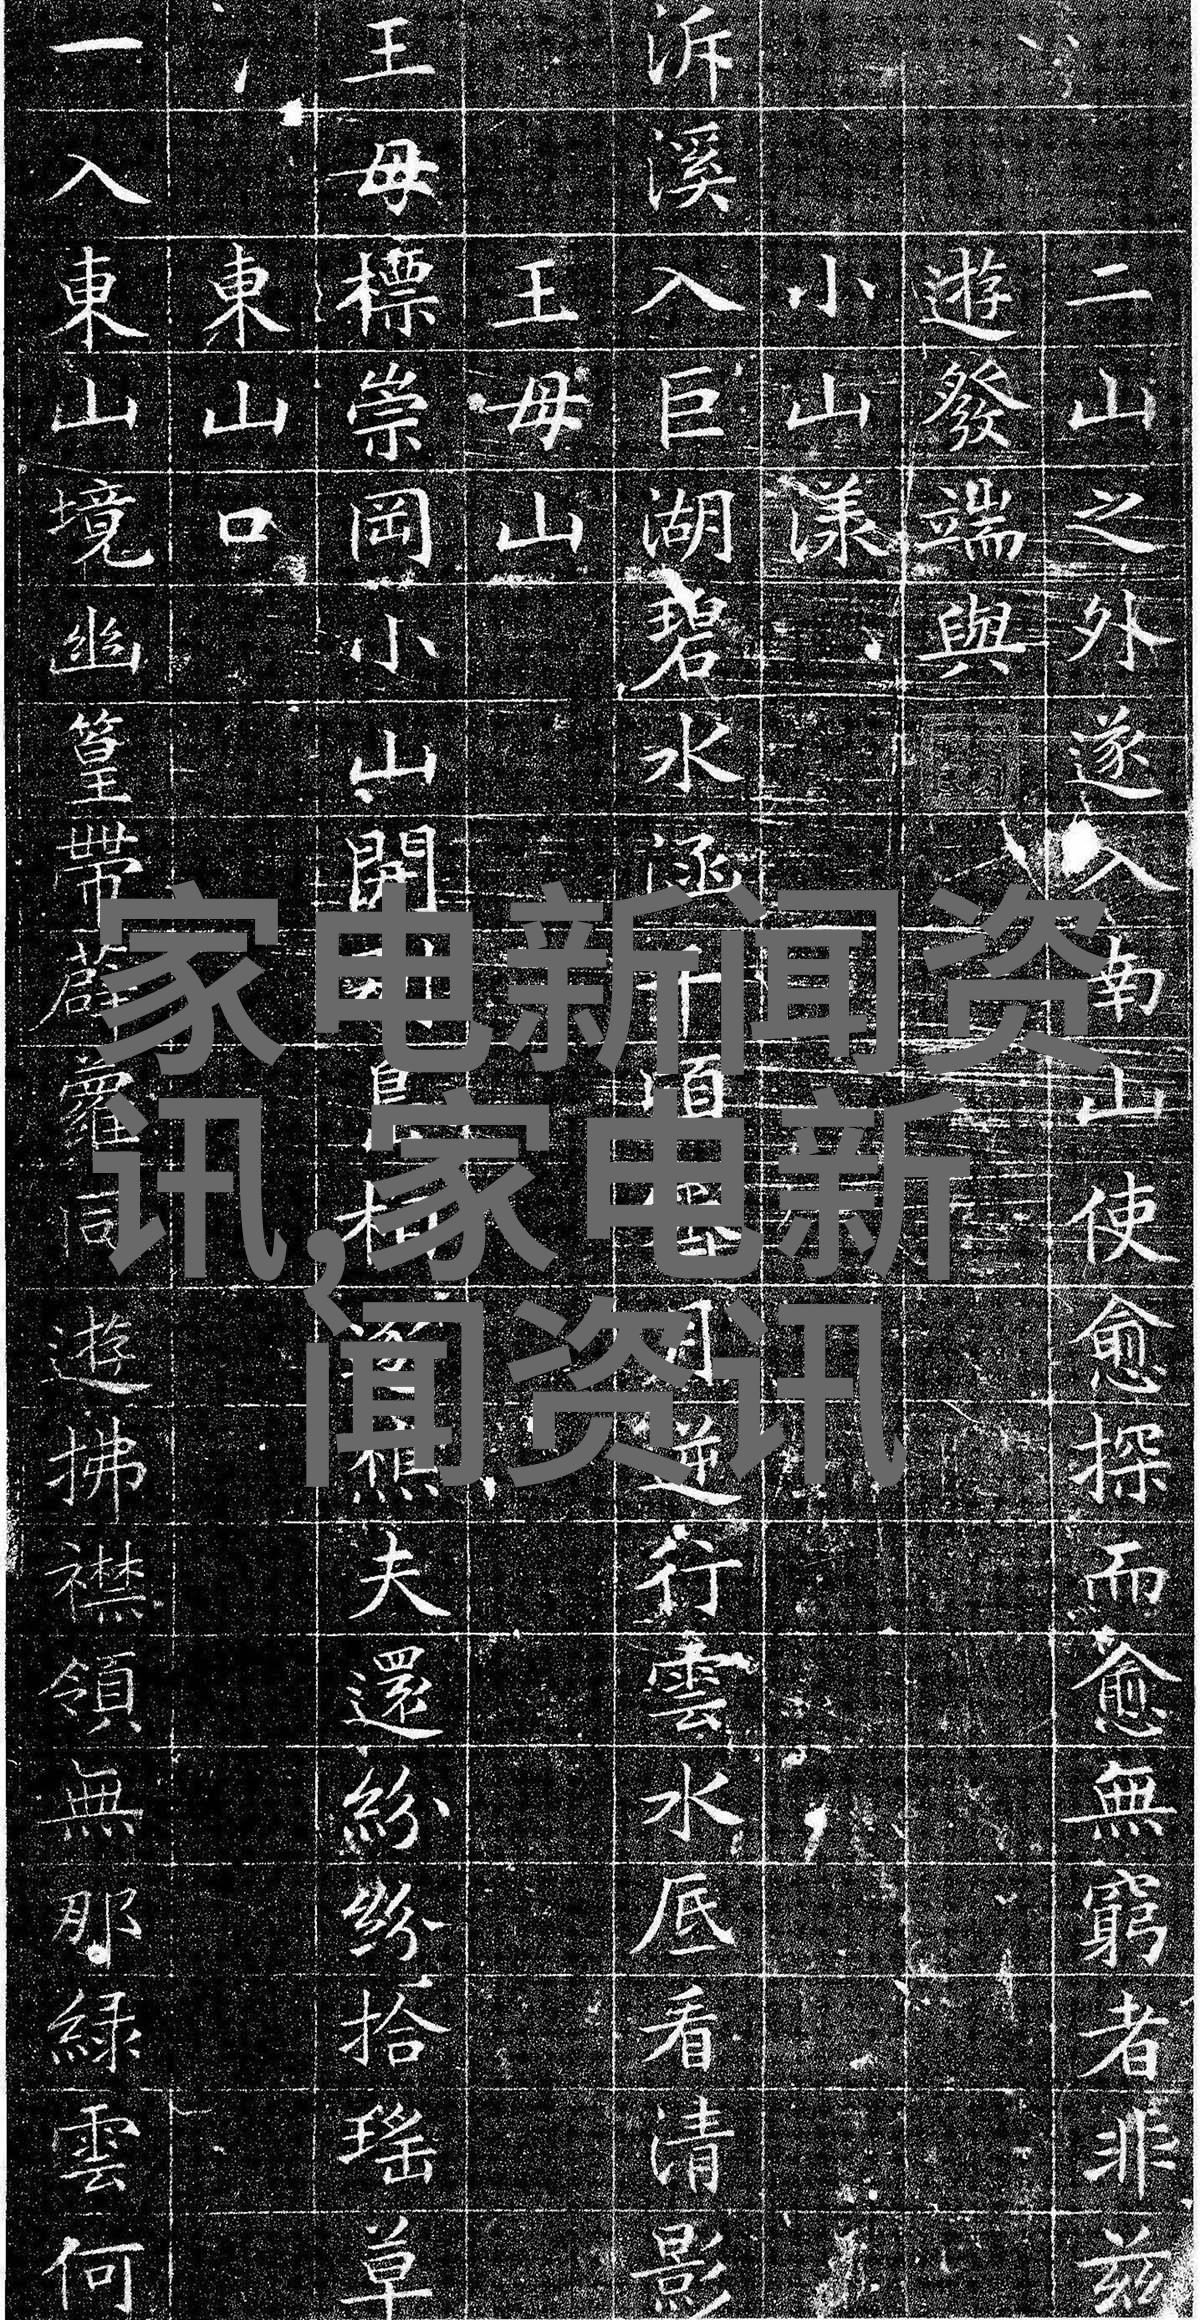 二山之外遂入南山使愈探而愈無窮者非兹
遊發端與
小山漾
泝溪入巨湖碧水涵千頃逆行雲水底看清影
王母山
王母標崇岡小山開樵夫還紛紛拾瑤草
東山口
一入東山境幽篁帶薜蘿同遊拂襟領無那緑雲何
家电新闻资
讯,家电新
闻资讯